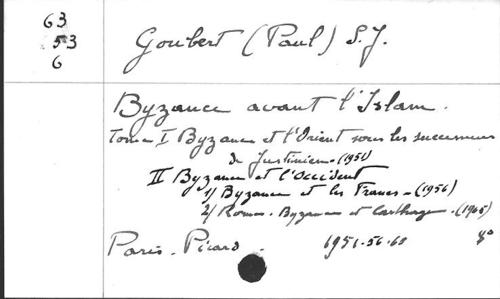 63
53
6
Goubert (Paul) S.J.
Byzance avant l'Islam.
Tome I Byzance et l'Orient sous les successeurs
de Justinien - (1951)
II Byzance et l'Occident
1/ Byzance et les Francs - (1956)
2/ Rome - Byzance et Carthage - (1965)
Paris - Picard. 1951-56-65 8°